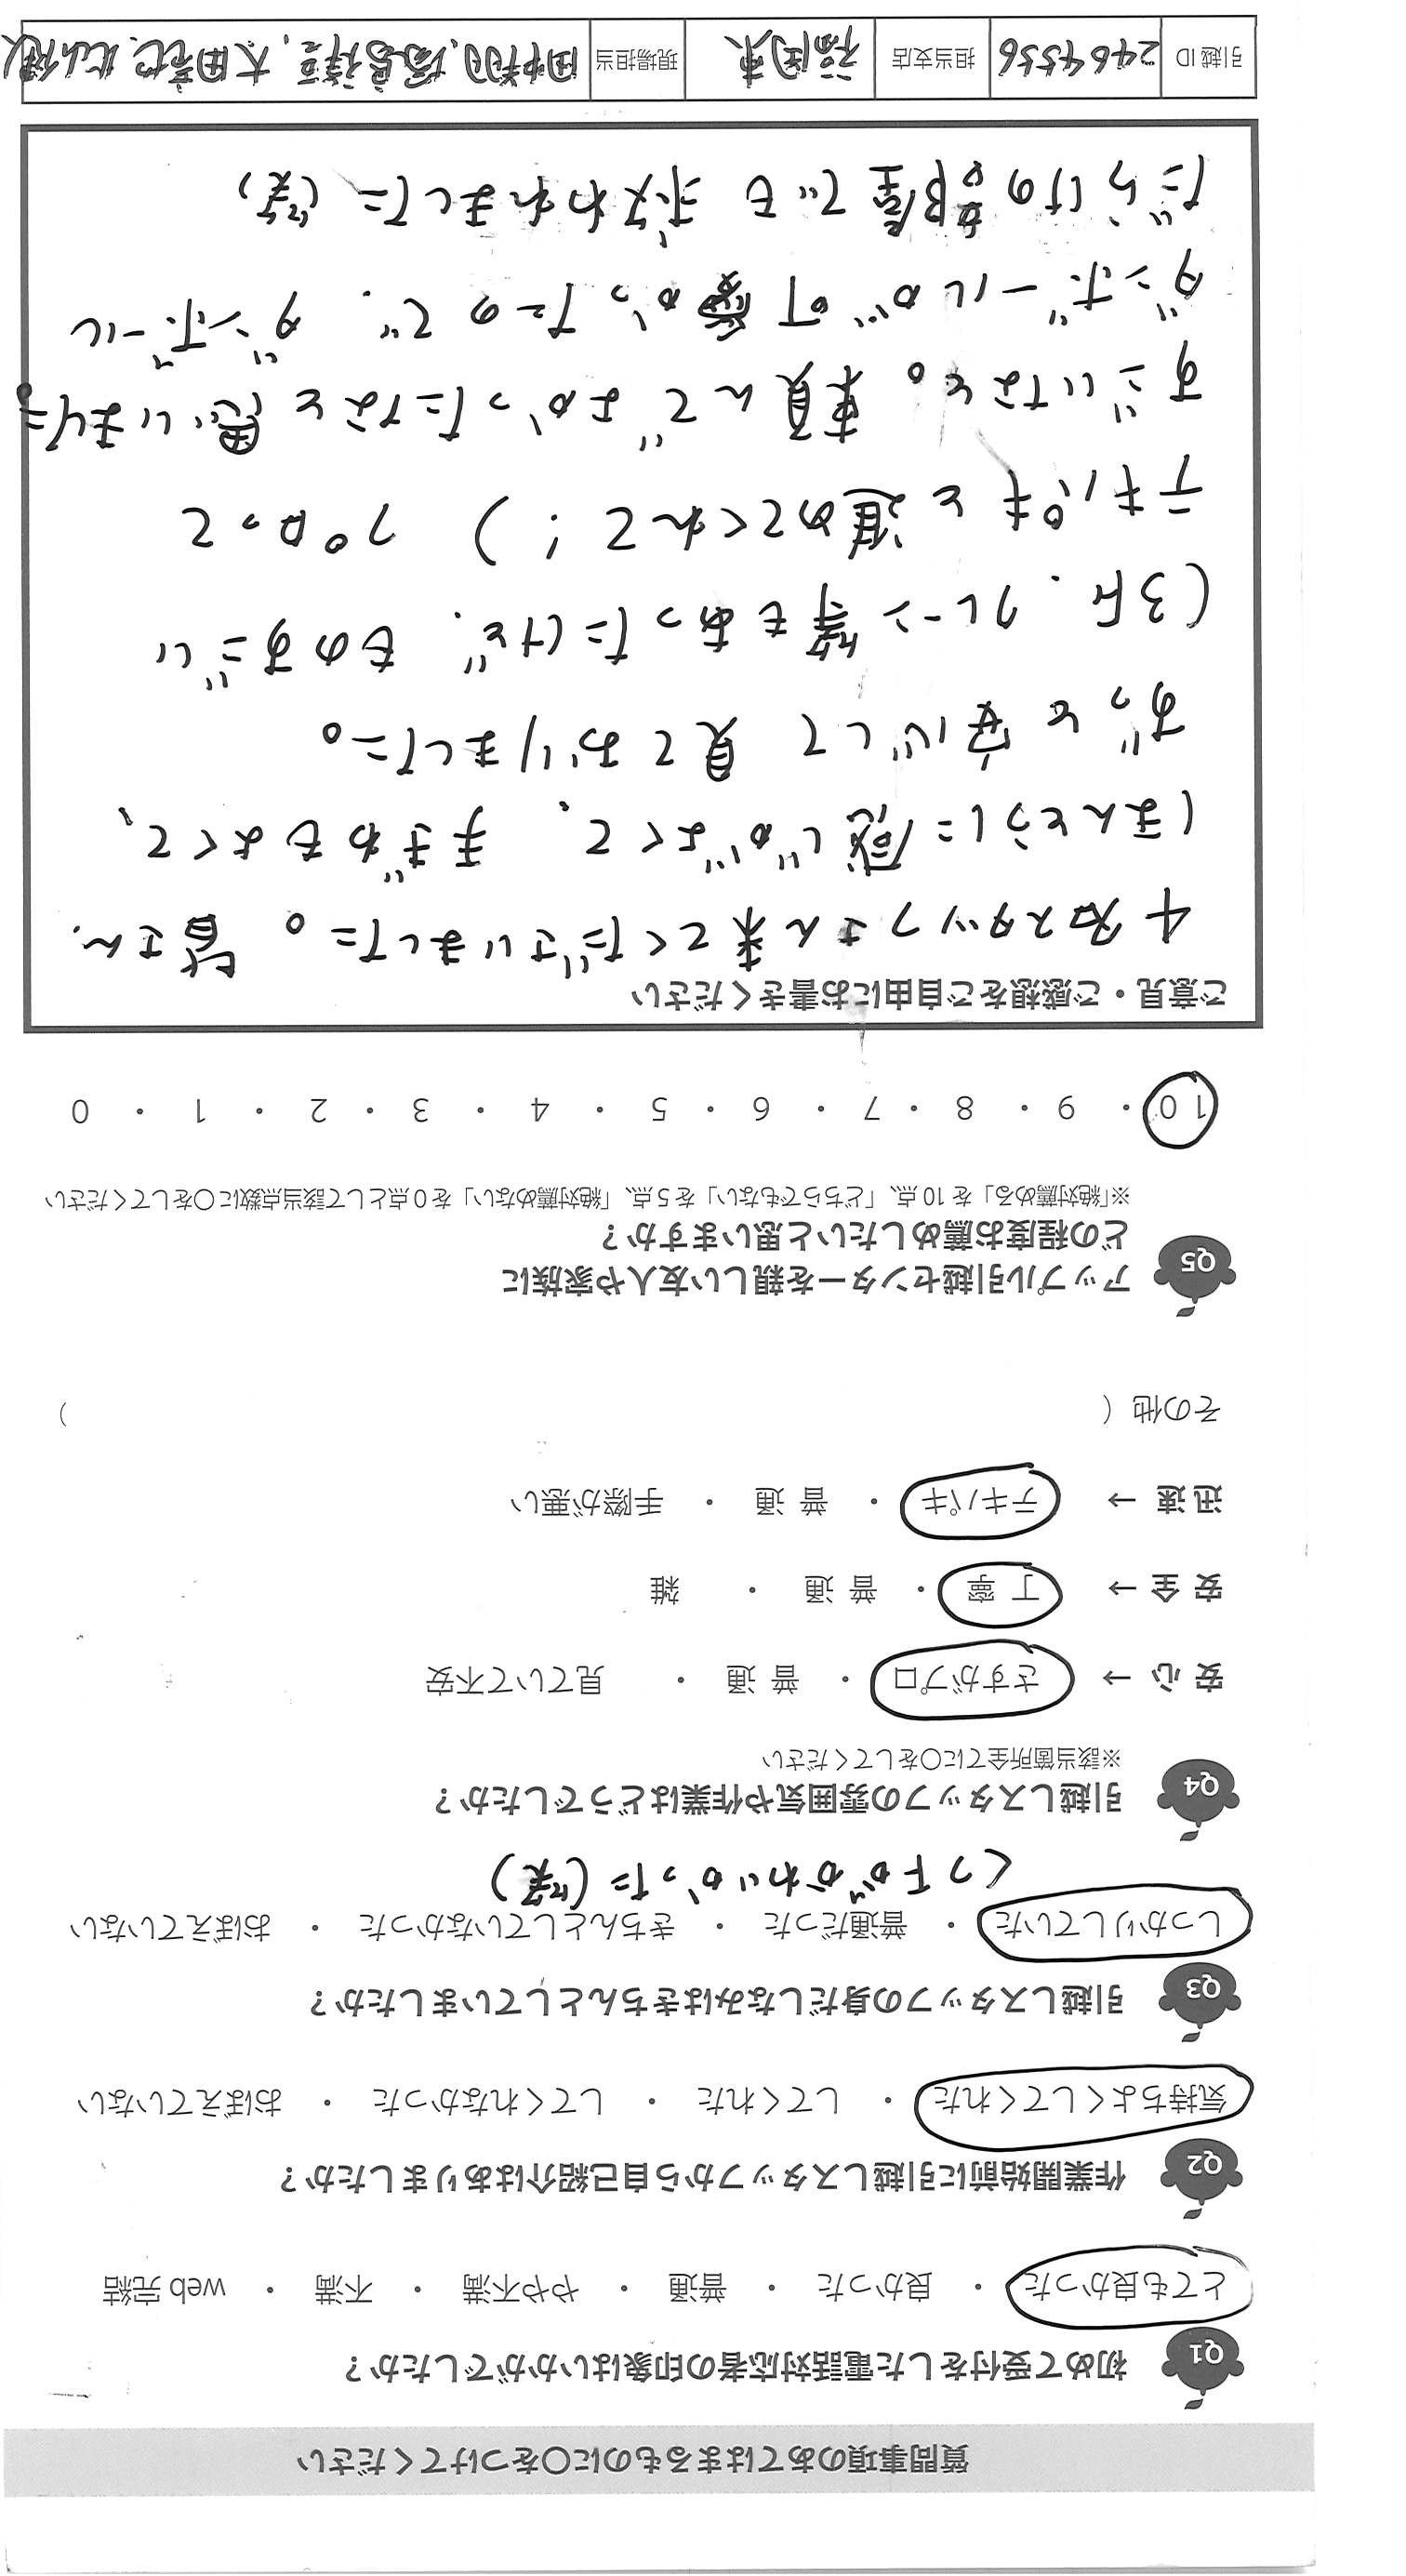 質問事項のあてはまるものに〇をつけてください
Q1 初めて受付をした電話対応者の印象はいかがでしたか？
とても良かった ・ 良かった ・ 普通 ・ やや不満 ・ 不満 ・ web 完結
Q2 作業開始前に引越しスタッフから自己紹介はありましたか？
気持ちよくしてくれた ・ してくれた ・ してくれなかった ・ おぼえていない
Q3 引越しスタッフの身だしなみはきちんとしていましたか？
しっかりしていた ・ 普通だった ・ きちんとしていなかった ・ おぼえていない
くつ下がかわいかった(笑)
Q4 引越しスタッフの雰囲気や作業はどうでしたか？
※該当箇所全てに〇をしてください
安 心 → さすがプロ ・ 普 通 ・ 見ていて不安
安 全 → 丁 寧 ・ 普 通 ・ 雑
迅 速 → テキパキ ・ 普 通 ・ 手際が悪い
その他 ( )
Q5 アップル引越センターを親しい友人や家族に
どの程度お薦めしたいと思いますか？
※「絶対薦める」を 10 点、「どちらでもない」を 5 点、「絶対薦めない」を 0 点として該当点数に〇をしてください
10 ・ 9 ・ 8 ・ 7 ・ 6 ・ 5 ・ 4 ・ 3 ・ 2 ・ 1 ・ 0
ご意見・ご感想をご自由にお書きください
4名スタッフさん来てくださいました。皆さん、
ほんとうに感じがよくて、手ぎわもよくて、
ずっと安心して見ておりました。
(3F、クレーン等もあったけど、ものすごい
テキパキと進めてくれて；) プロって
すごいなと。 頼んでよかったなと思いました。
ダンボールが可愛かったので、ダンボール
だらけの部屋でも 救われました(笑)
引越 ID 2464556 担当支店 福岡東 現場担当